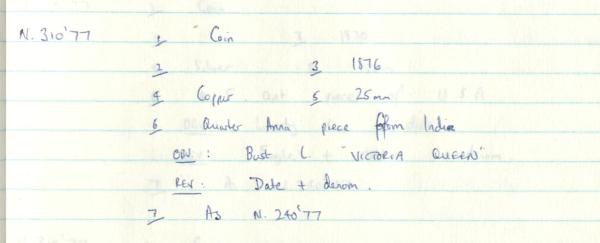 N. 310'77 1 Coin
2 3 1876
4 Copper 5 25mm
6 Quarter Anna piece from India
OBV: Bust L. "VICTORIA QUEEN"
REV: Date + denom.
7 As N. 240'77